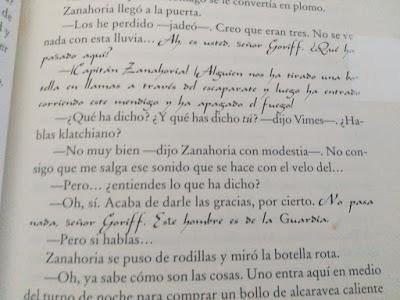 se le convertía en plomo.
Zanahoria llegó a la puerta.
—Los he perdido —jadeó—. Creo que eran tres. No se ve
nada con esta lluvia... Ah, es usted, señor Goriff. ¿Qué ha
pasado aquí?
—¡Capitán Zanahoria! ¡Alguien nos ha tirado una bo-
tella en llamas a través del escaparate y luego ha entrado
corriendo este mendigo y ha apagado el fuego!
—¿Qué ha dicho? ¿Y qué has dicho tú? —dijo Vimes—. ¿Ha-
blas klatchiano?
—No muy bien —dijo Zanahoria con modestia—. No con-
sigo que me salga ese sonido que se hace con el velo del...
—Pero... ¿entiendes lo que ha dicho?
—Oh, sí. Acaba de darle las gracias, por cierto. No pasa
nada, señor Goriff. Este hombre es de la Guardia.
—Pero si hablas...
Zanahoria se puso de rodillas y miró la botella rota.
—Oh, ya sabe cómo son las cosas. Uno entra aquí en medio
del turno de noche para comprar un bollo de alcaravea caliente